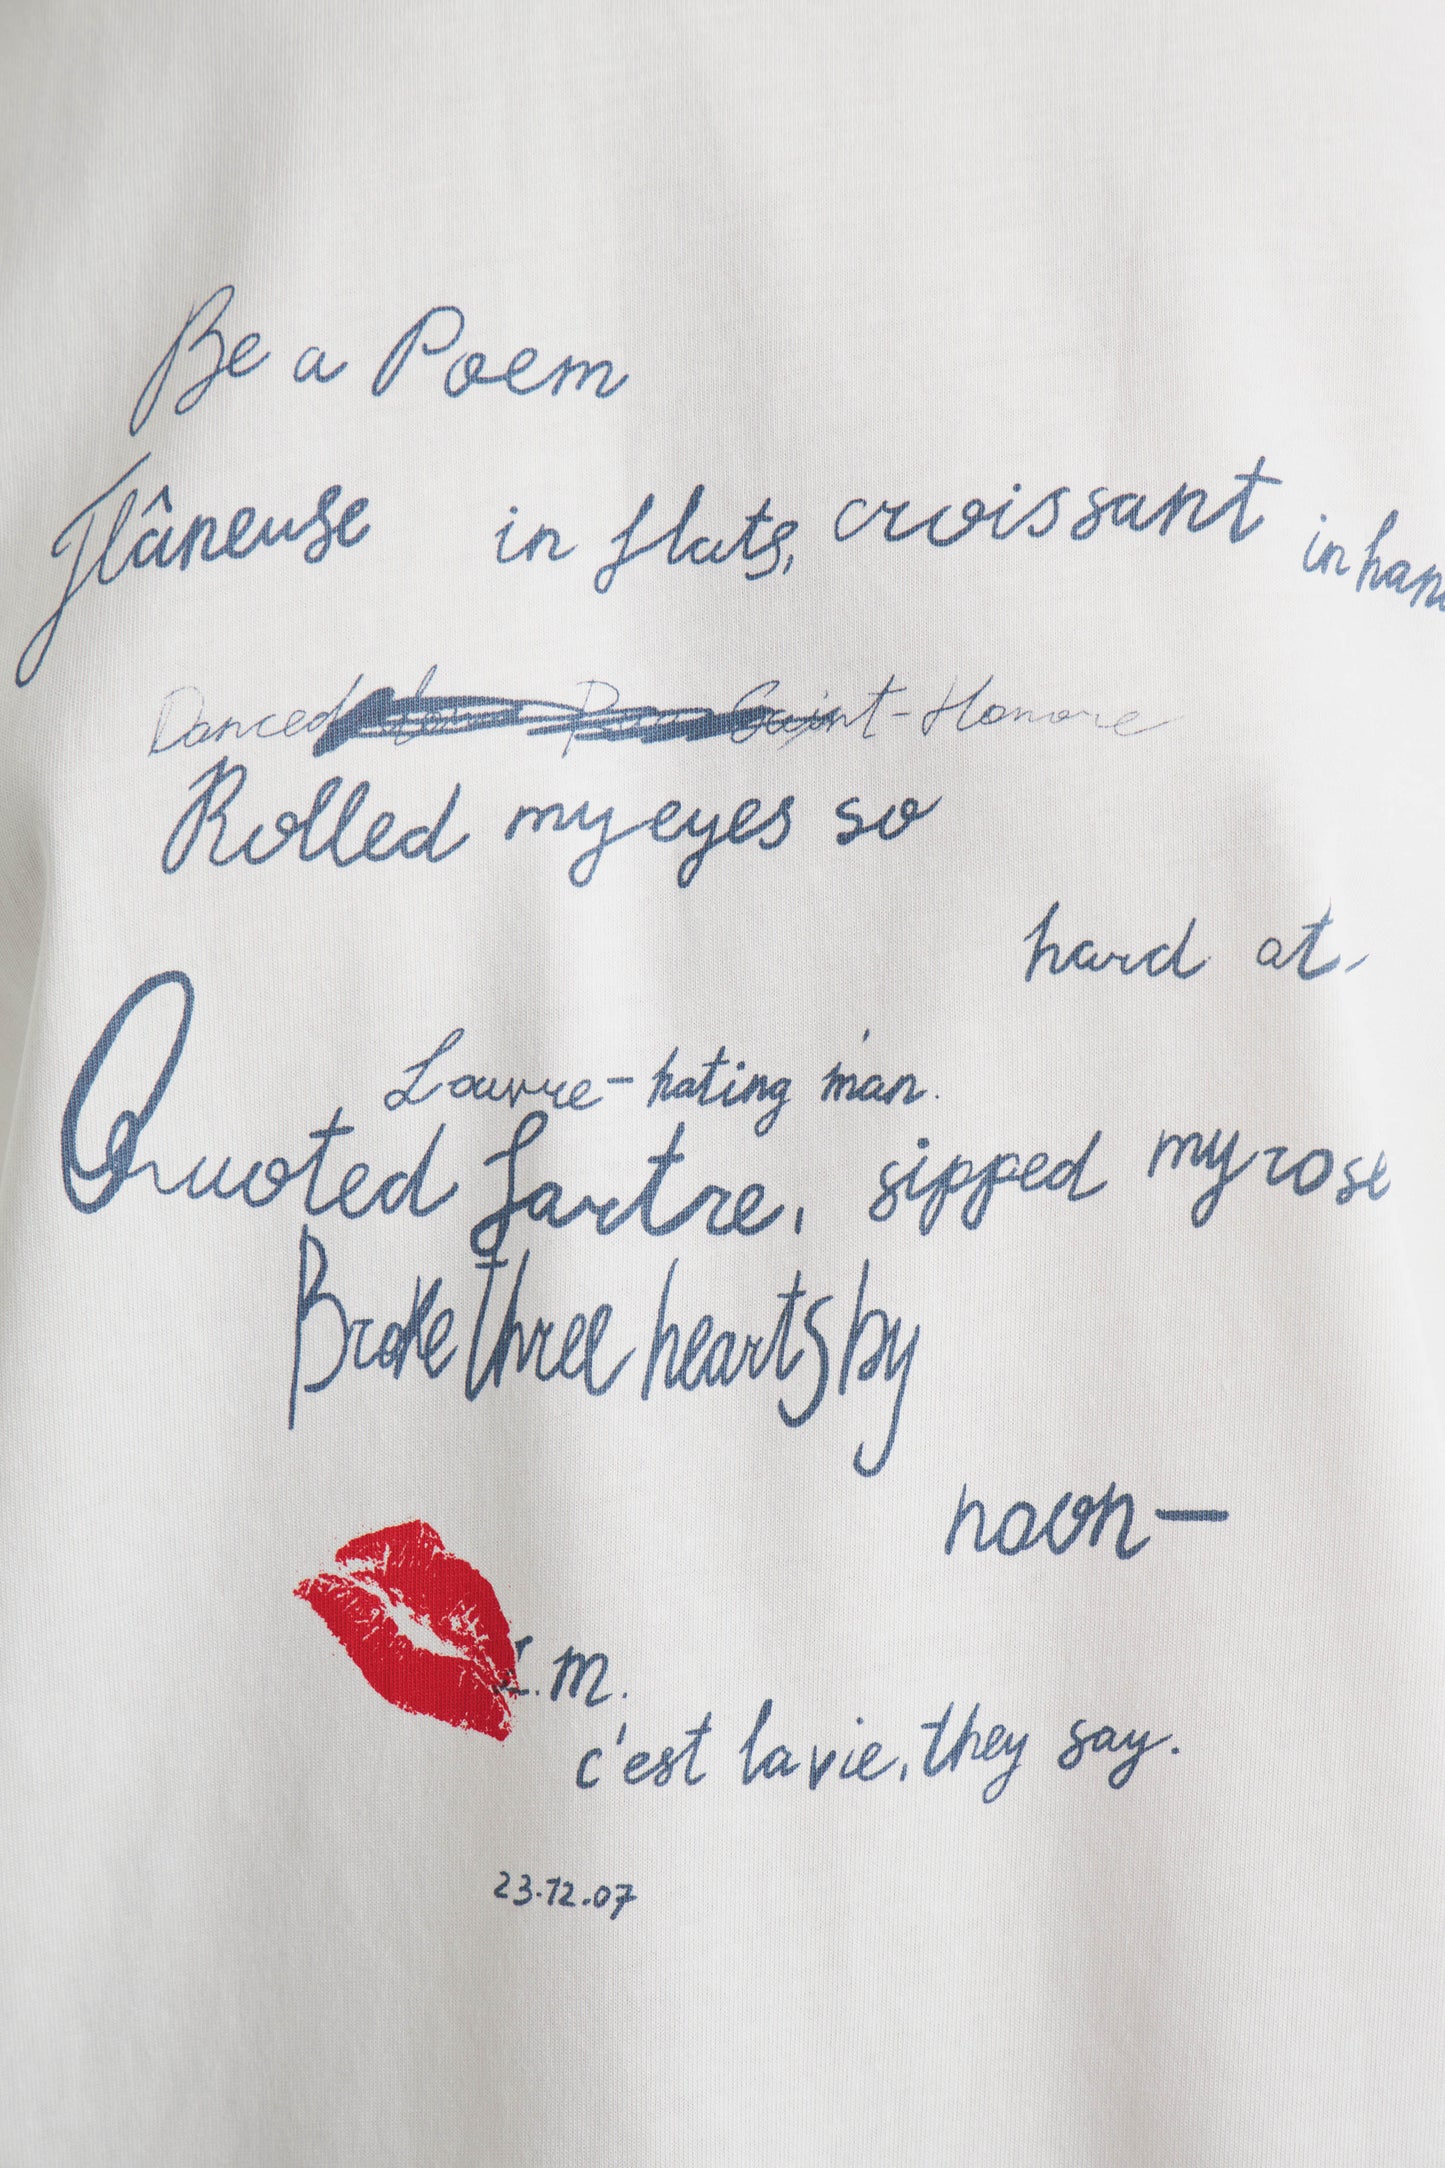 Be a Poem
Flâneuse in flats, croissant in han
Danced Saint-Honore
Rolled my eyes so
hard at
Louvre-hating man.
Quoted Sartre, sipped my rose
Broke three hearts by
noon—
.m.
c'est la vie, they say.
23.12.07